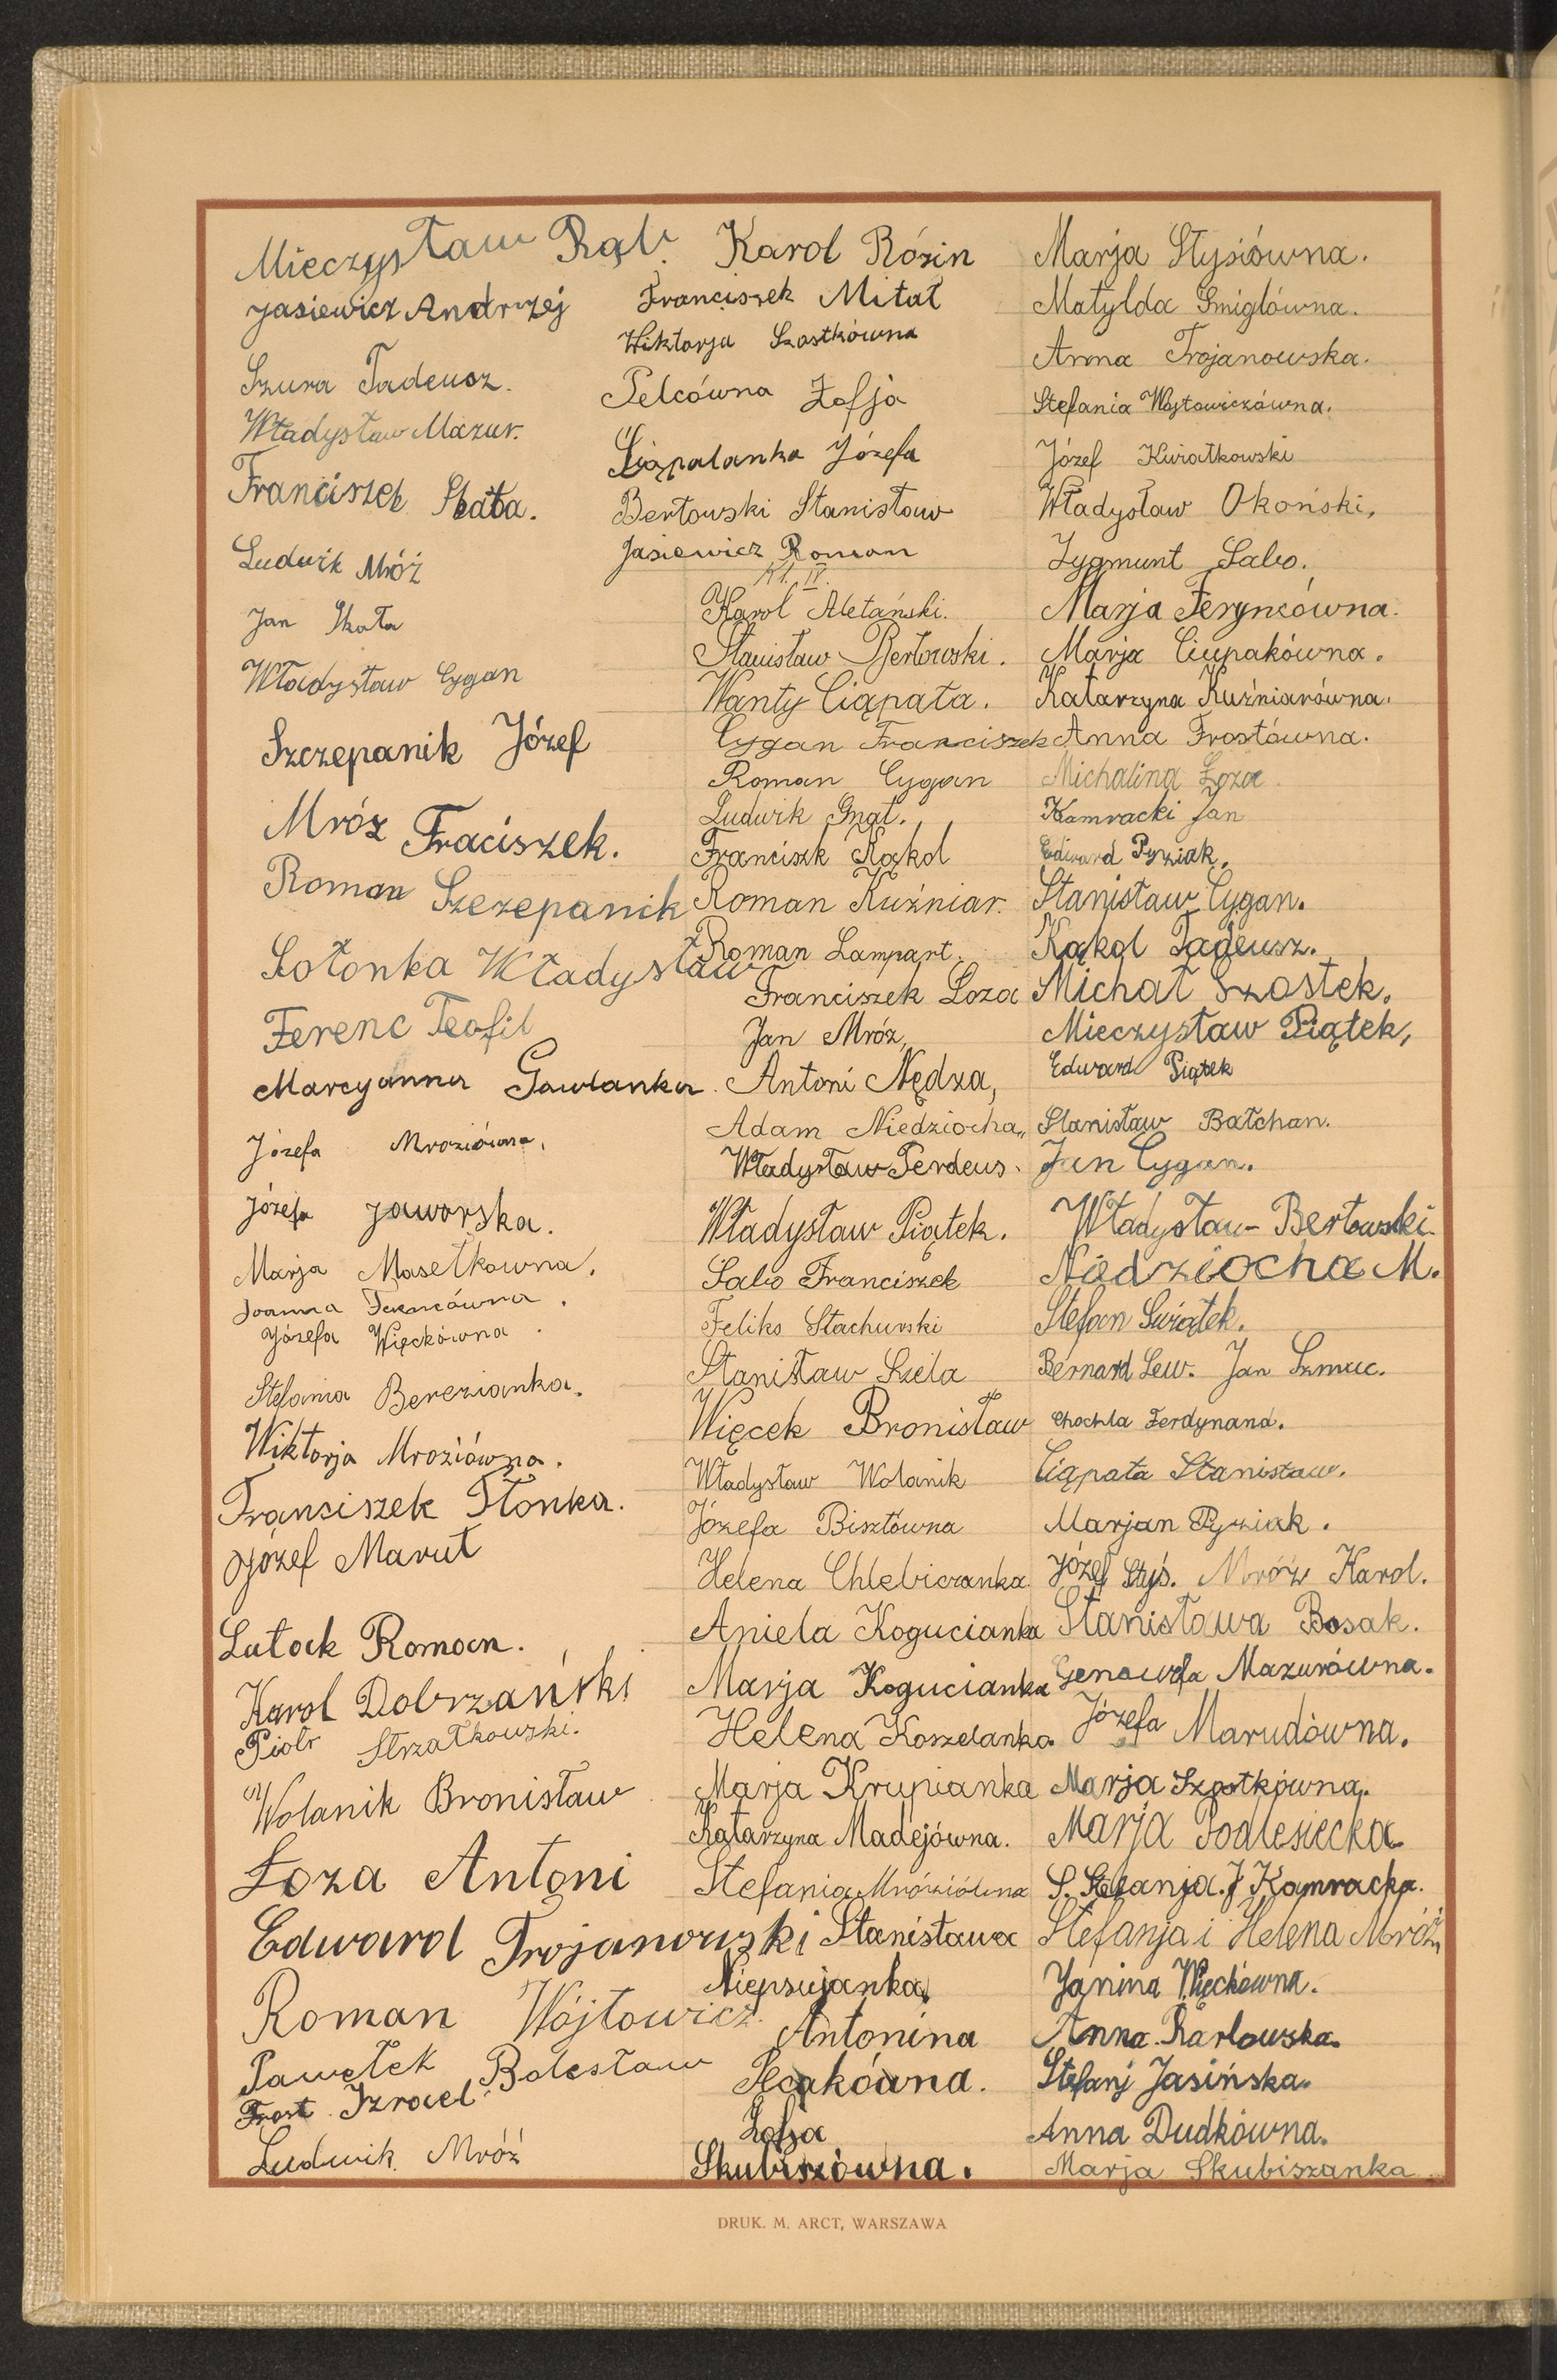 Mieczysław Rąb.
Jasiewicz Andrzej
Szura Tadeusz.
Władysław Mazur.
Franciszek Skała.
Ludwik Mróź
Jan Skała
Władysław Cygan
Szczepanik Józef
Mróz Fraciszek.
Roman Szczepanik
Sołonka Władysław
Ferenc Teofil
Marcyanna Gawlanka
Józefa Mroziówna.
Józefa Jaworska.
Marja Masełkowna.
Joanna Ferencówna.
Józefa Więckówna.
Stefania Berezianka.
Wiktorja Mroziówna.
Franciszek Tłonka.
Józef Marut
Lutack Roman.
Karol Dobrzański
Piotr Strzałkowski.
Wolanik Bronisław
Łoza Antoni
Edward Trojanowski
Roman Wójtowicz.
Pawełek Bolesław
Frost Izrael
Ludwik Mróź
Karol Rózin
Franciszek Mitał
Wiktorja Szostkówna
Pelcówna Zofja
Ciąpalanka Józefa
Bertowski Stanisław
Jasiewicz Roman
Kl. IV.
Karol Aletański.
Stanisław Bertowski.
Wanty Ciąpała.
Cygan Franciszek
Roman Cygan
Ludwik Gnat.
Franciszk Kąkol
Roman Kuźniar.
Roman Lampart.
Franciszek Łoza
Jan Mróz,
Antoni Nędza,
Adam Niedziocha,,
Władysław Perdeus.
Władysław Piątek.
Sabo Franciszek
Feliks Stachurski
Stanisław Szela
Więcek Bronisław
Władysław Wolanik
Józefa Bisztówna
Helena Chlebiczanka
Aniela Kogucianka
Marja Kogucianka
Helena Koszelanka
Marja Krupianka
Katarzyna Madejówna.
Stefania Mróziówna
Stanisława
Niepsujanka
Antonina
Pecakówna.
Zofja
Skubiszówna.
Marja Stysiówna.
Matylda Śmigłówna.
Anna Trojanowska.
Stefania Wójtowiczówna.
Józef Kwiatkowski
Władysław Okoński,
Zygmunt Sabo.
Marja Feryncówna.
Marja Ciupakówna.
Katarzyna Kuźniarówna.
Anna Frostówna.
Michalina Łoza.
Kamracki Jan
Edward Pyziak.
Stanisław Cygan.
Kąkol Tadeusz.
Michał Szostek.
Mieczysław Piątek,
Edward Piątek
Stanisław Bałchan.
Jan Cygan.
Władysław Bertowski.
Niedziocha M.
Stefan Świątek.
Bernard Lew. Jan Szmuc.
Chochla Ferdynand.
Ciąpała Stanisław.
Marjan Pyziak.
Józef Styś. Mróź Karol.
Stanisława Bosak.
Genowefa Mazurówna.
Józefa Marudówna.
Marja Szostkówna.
Marja Podlesiecka
S. Stefanja. J Kamracka.
Stefanja i Helena Mróź
Janina Więckówna.
Anna Karlowska.
Stefanj Jasińska.
Anna Dudkówna.
Marja Skubiszanka.
DRUK. M. ARCT, WARSZAWA